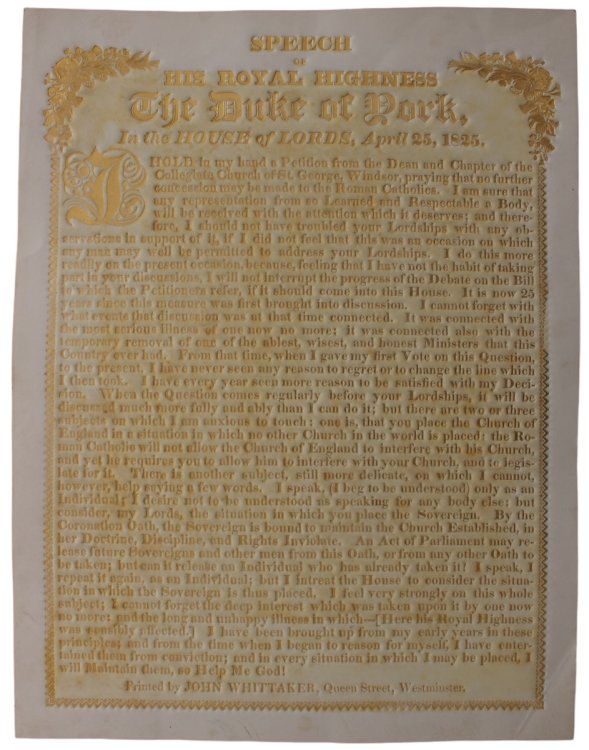 SPEECH
OF
HIS ROYAL HIGHNESS
The Duke of York,
In the HOUSE of LORDS, April 25, 1825.
I HOLD in my hand a Petition from the Dean and Chapter of the
Collegiate Church of St. George, Windsor, praying that no further
concession may be made to the Roman Catholics. I am sure that
any representation from so Learned and Respectable a Body,
will be received with the attention which it deserves; and there-
fore, I should not have troubled your Lordships with any ob-
servations in support of it, if I did not feel that this was an occasion on which
any man may well be permitted to address your Lordships. I do this more
readily on the present occasion, because, feeling that I have not the habit of taking
part in your discussions, I will not interrupt the progress of the Debate on the Bill
to which the Petitioners refer, if it should come into this House. It is now 25
years since this measure was first brought into discussion. I cannot forget with
what events that discussion was at that time connected. It was connected with
the most serious illness of one now no more; it was connected also with the
temporary removal of one of the ablest, wisest, and honest Ministers that this
Country ever had. From that time, when I gave my first Vote on this Question,
to the present, I have never seen any reason to regret or to change the line which
I then took. I have every year seen more reason to be satisfied with my Deci-
sion. When the Question comes regularly before your Lordships, it will be
discussed much more fully and ably than I can do it; but there are two or three
subjects on which I am anxious to touch: one is, that you place the Church of
England in a situation in which no other Church in the world is placed: the Ro-
man Catholic will not allow the Church of England to interfere with his Church,
and yet he requires you to allow him to interfere with your Church, and to legis-
late for it. There is another subject, still more delicate, on which I cannot,
however, help saying a few words. I speak, (I beg to be understood) only as an
Individual; I desire not to be understood as speaking for any body else; but
consider, my Lords, the situation in which you place the Sovereign. By the
Coronation Oath, the Sovereign is bound to maintain the Church Established, in
her Doctrine, Discipline, and Rights Inviolate. An Act of Parliament may re-
lease future Sovereigns and other men from this Oath, or from any other Oath to
be taken; but can it release an Individual who has already taken it? I speak, I
repeat it again, as an Individual; but I intreat the House to consider the situa-
tion in which the Sovereign is thus placed. I feel very strongly on this whole
subject; I cannot forget the deep interest which was taken upon it by one now
no more; and the long and unhappy illness in which—[Here his Royal Highness
was sensibly affected.] I have been brought up from my early years in these
principles; and from the time when I began to reason for myself, I have enter-
tained them from conviction; and in every situation in which I may be placed, I
will Maintain them, so Help Me God!
Printed by JOHN WHITTAKER, Queen Street, Westminster.